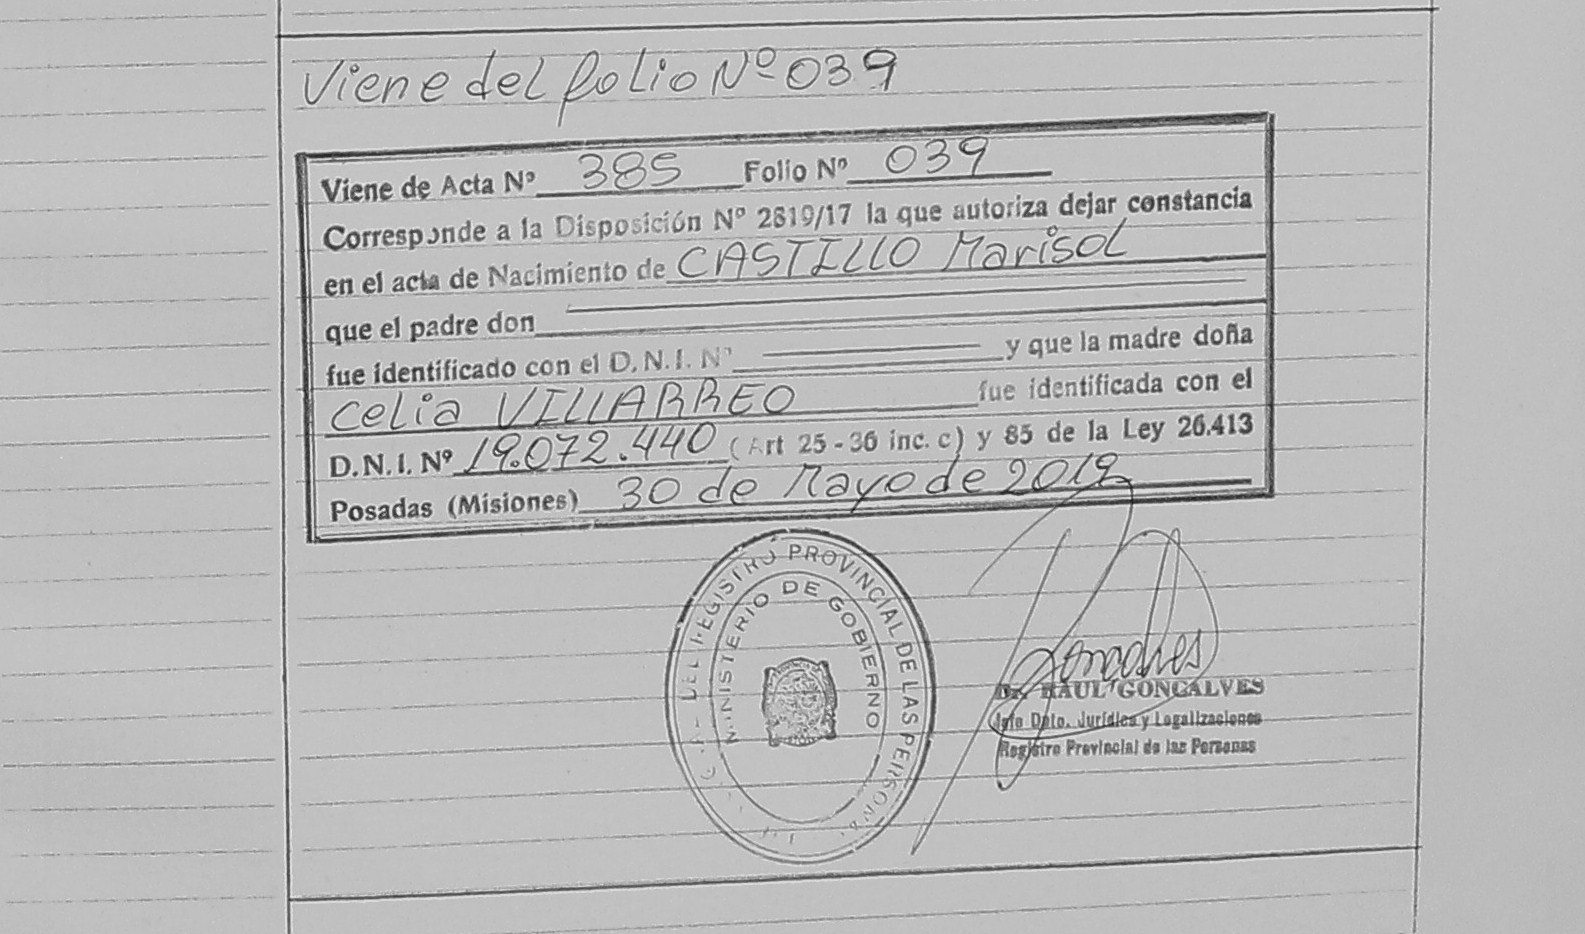 Viene del folio Nº 039
Viene de Acta Nº 385 Folio Nº 039
Corresponde a la Disposición Nº 2819/17 la que autoriza dejar constancia
en el acta de Nacimiento de CASTILLO Marisol
que el padre don
fue identificado con el D.N.I. Nº y que la madre doña
Celia VILLARREO fue identificada con el
D.N.I. Nº 19.072.440 (Art 25-36 inc. c) y 85 de la Ley 26.413
Posadas (Misiones) 30 de Mayo de 2019
DEL REGISTRO PROVINCIAL DE LAS PERSONAS
MINISTERIO DE GOBIERNO
Dr. RAUL GONCALVES
Jefe Dpto. Jurídico y Legalizaciones
Registro Provincial de las Personas